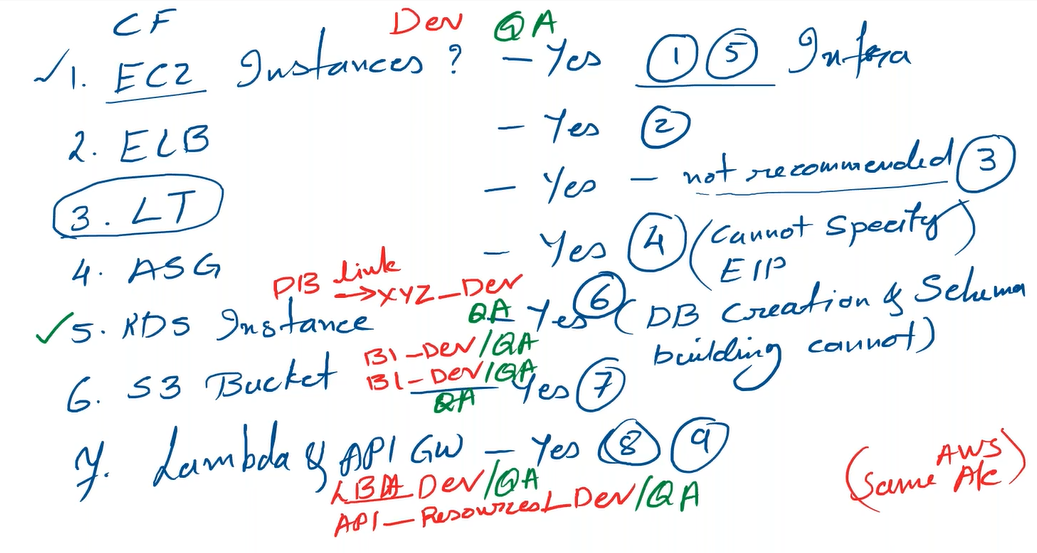 CF Dev QA
✓1. EC2 Instances? - Yes ① ⑤ Infra
2. ELB - Yes ②
3. LT - Yes - not recommended ③
4. ASG - Yes ④ (Cannot Specify EIP)
DB link → XYZ_Dev
✓5. RDS Instance QA Yes ⑥ (DB Creation & Schema building cannot)
B1-Dev/QA
6. S3 Bucket B1-Dev/QA Yes ⑦
QA
7. Lambda & API GW - Yes ⑧ ⑨
Dev/QA
API-Resources1_Dev/QA
(AWS Same A/c)